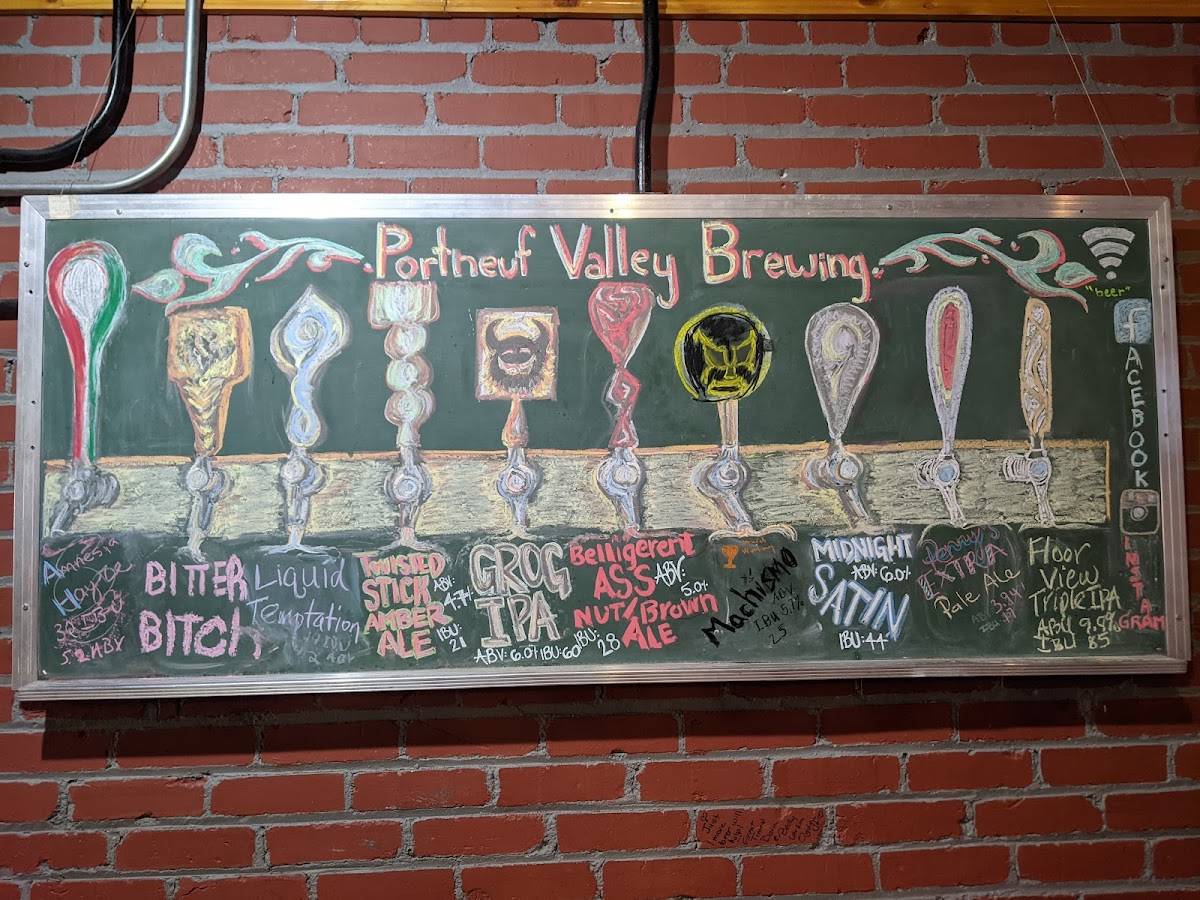 Portneuf Valley Brewing
"beer"
f
FACEBOOK
INSTAGRAM
Amnesia
Haze
5.2 ABV
BITTER
BITCH
Liquid
Temptation
TWISTED
STICK
AMBER
ALE
ABV:
4.7%
IBU:
21
GROG
IPA
ABV: 6.0% IBU: 60
Belligerent
ASS
NUT/Brown
ALE
ABV:
5.0%
IBU:
28
Machismo
ABV
5.1%
IBU
25
MIDNIGHT
ABV: 6.0%
SATIN
IBU: 44
Penny's
EXTRA
Pale Ale
Floor
View
Triple IPA
ABV 9.9%
IBU 85